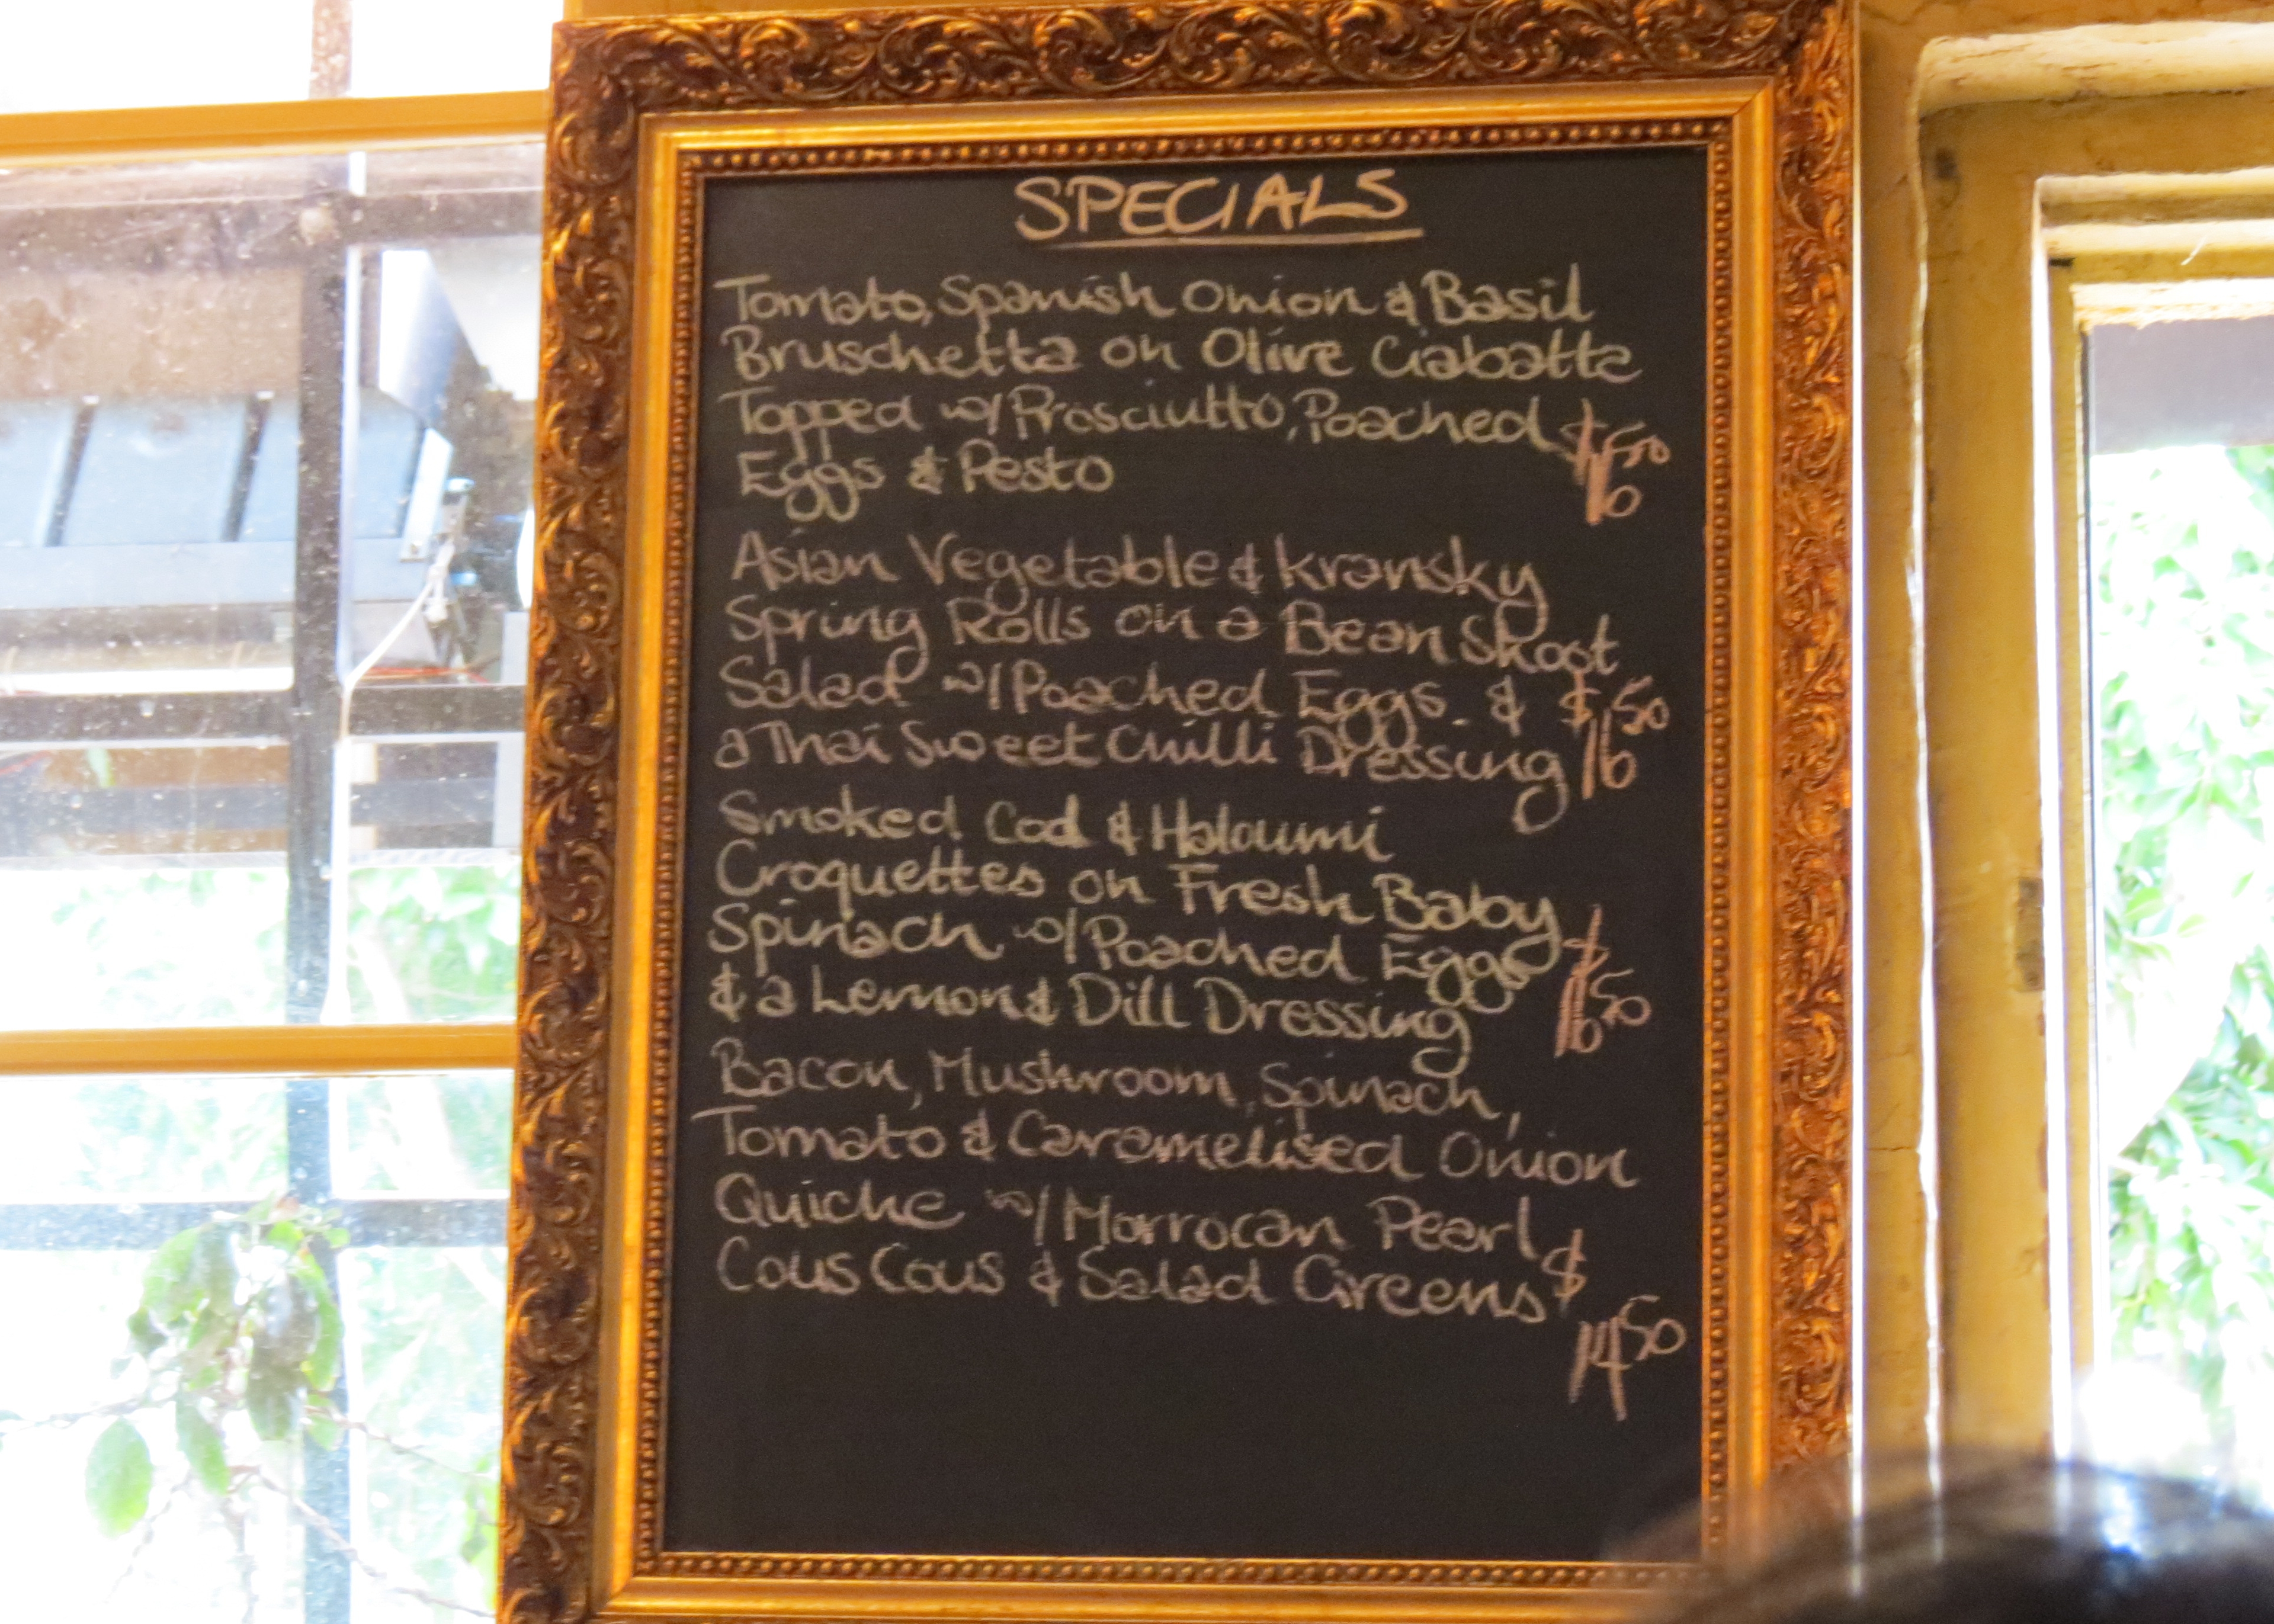 SPECIALS
Tomato, Spanish Onion & Basil
Bruschetta on Olive Ciabatta
Topped w/ Prosciutto, Poached
Eggs & Pesto $16.50
Asian Vegetable & Kransky
Spring Rolls on a Bean Shoot
Salad w/ Poached Eggs &
a Thai Sweet Chilli Dressing $16.50
Smoked Cod & Haloumi
Croquettes on Fresh Baby
Spinach w/ Poached Eggs
& a Lemon & Dill Dressing $16.50
Bacon, Mushroom, Spinach,
Tomato & Caramelised Onion
Quiche w/ Morrocan Pearl
Cous Cous & Salad Greens $
14.50